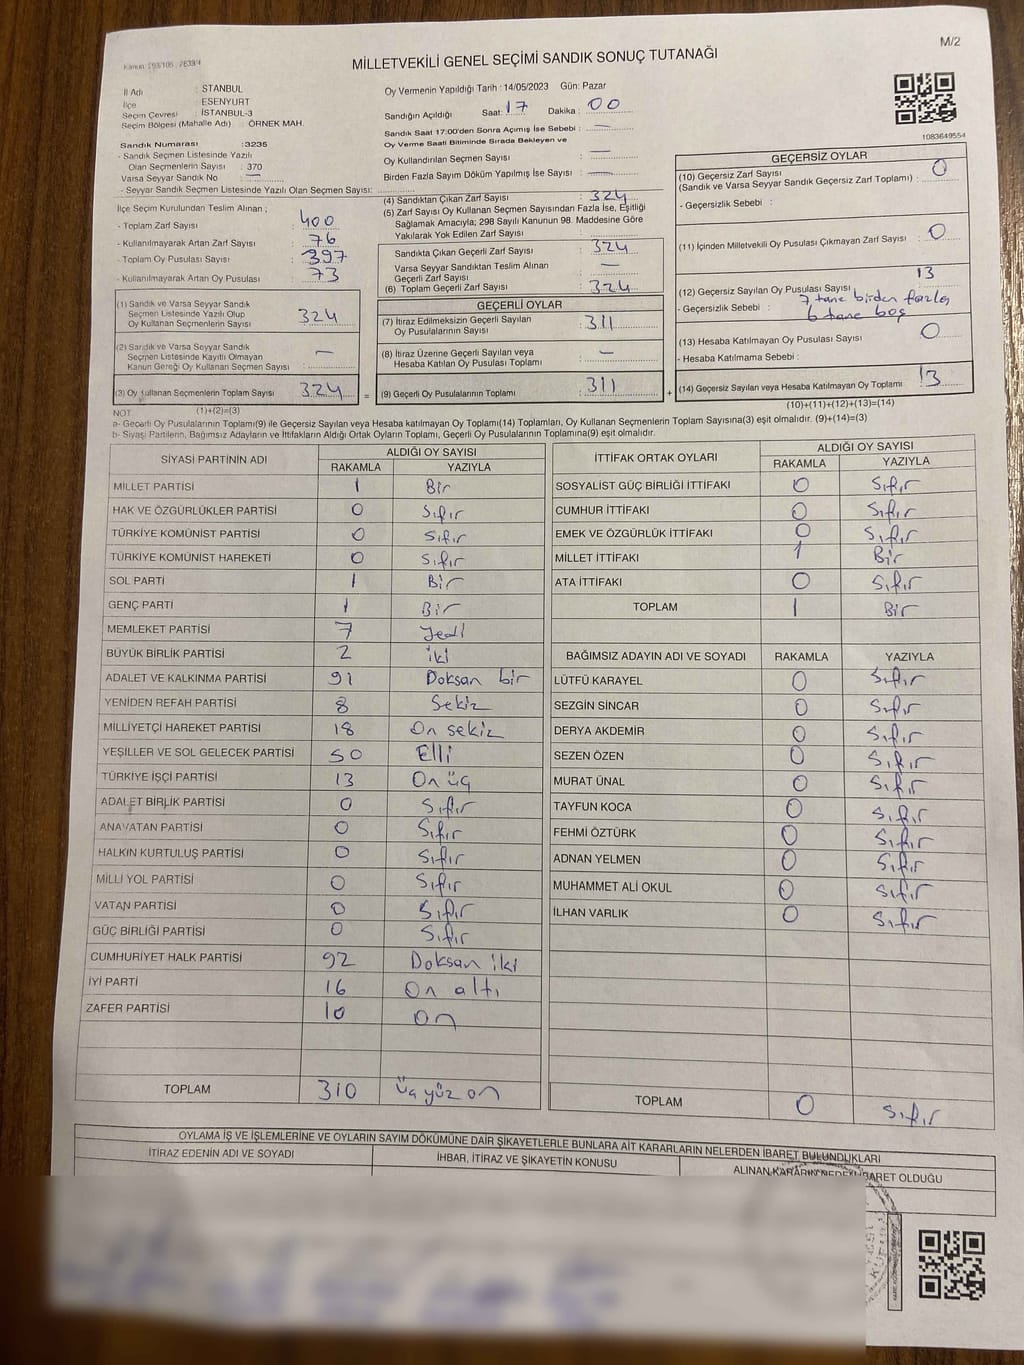 M/2
MİLLETVEKİLİ GENEL SEÇİMİ SANDIK SONUÇ TUTANAĞI
İl Adı : STANBUL
İlçe : ESENYURT
Seçim Çevresi : İSTANBUL-3
Seçim Bölgesi (Mahalle Adı) : ÖRNEK MAH.
Sandık Numarası :3235
- Sandık Seçmen Listesinde Yazılı
Olan Seçmenlerin Sayısı : 370
Varsa Seyyar Sandık No : —
- Seyyar Sandık Seçmen Listesinde Yazılı Olan Seçmen Sayısı:
Oy Vermenin Yapıldığı Tarih : 14/05/2023 Gün: Pazar
Sandığın Açıldığı Saat: 17 Dakika : 00
Sandık Saat 17:00'den Sonra Açımış İse Sebebi : —
Oy Verme Saati Bitiminde Sırada Bekleyen ve
Oy Kullandırılan Seçmen Sayısı : —
Birden Fazla Sayım Döküm Yapılmış İse Sayısı : —
1083649554
İlçe Seçim Kurulundan Teslim Alınan ;
- Toplam Zarf Sayısı : 400
- Kullanılmayarak Artan Zarf Sayısı : 76
- Toplam Oy Pusulası Sayısı : 397
- Kullanılmayarak Artan Oy Pusulası : 73
(1) Sandık ve Varsa Seyyar Sandık
Seçmen Listesinde Yazılı Olup
Oy Kullanan Seçmenlerin Sayısı : 324
(2) Sandık ve Varsa Seyyar Sandık
Seçmen Listesinde Kayıtlı Olmayan
Kanun Gereği Oy Kullanan Seçmen Sayısı : —
(3) Oy Kullanan Seçmenlerin Toplam Sayısı : 324 =
(4) Sandıktan Çıkan Zarf Sayısı : 324
(5) Zarf Sayısı Oy Kullanan Seçmen Sayısından Fazla İse, Eşitliği
Sağlamak Amacıyla; 298 Sayılı Kanunun 98. Maddesine Göre
Yakılarak Yok Edilen Zarf Sayısı :
Sandıkta Çıkan Geçerli Zarf Sayısı : 324
Varsa Seyyar Sandıktan Teslim Alınan
Geçerli Zarf Sayısı : —
(6) Toplam Geçerli Zarf Sayısı : 324
GEÇERLİ OYLAR
(7) İtiraz Edilmeksizin Geçerli Sayılan
Oy Pusulalarının Sayısı : 311
(8) İtiraz Üzerine Geçerli Sayılan veya
Hesaba Katılan Oy Pusulası Toplamı : —
(9) Geçerli Oy Pusulalarının Toplamı : 311 +
GEÇERSİZ OYLAR
(10) Geçersiz Zarf Sayısı
(Sandık ve Varsa Seyyar Sandık Geçersiz Zarf Toplamı) : 0
- Geçersizlik Sebebi :
(11) İçinden Milletvekili Oy Pusulası Çıkmayan Zarf Sayısı : 0
(12) Geçersiz Sayılan Oy Pusulası Sayısı : 13
- Geçersizlik Sebebi : 7 tane birden fazla
6 tane boş
(13) Hesaba Katılmayan Oy Pusulası Sayısı : 0
- Hesaba Katılmama Sebebi :
(14) Geçersiz Sayılan veya Hesaba Katılmayan Oy Toplamı : 13
NOT: (1)+(2)=(3) (10)+(11)+(12)+(13)=(14)
a- Geçerli Oy Pusulalarının Toplamı(9) ile Geçersiz Sayılan veya Hesaba katılmayan Oy Toplamı(14) Toplamları, Oy Kullanan Seçmenlerin Toplam Sayısına(3) eşit olmalıdır. (9)+(14)=(3)
b- Siyasi Partilerin, Bağımsız Adayların ve İttifakların Aldığı Ortak Oyların Toplamı, Geçerli Oy Pusulalarının Toplamına(9) eşit olmalıdır.
SİYASİ PARTİNİN ADI ALDIĞI OY SAYISI
RAKAMLA YAZIYLA
MİLLET PARTİSİ 1 Bir
HAK VE ÖZGÜRLÜKLER PARTİSİ 0 Sıfır
TÜRKİYE KOMÜNİST PARTİSİ 0 Sıfır
TÜRKİYE KOMÜNİST HAREKETİ 0 Sıfır
SOL PARTİ 1 Bir
GENÇ PARTİ 1 Bir
MEMLEKET PARTİSİ 7 Yedi
BÜYÜK BİRLİK PARTİSİ 2 iki
ADALET VE KALKINMA PARTİSİ 91 Doksan bir
YENİDEN REFAH PARTİSİ 8 Sekiz
MİLLİYETÇİ HAREKET PARTİSİ 18 On sekiz
YEŞİLLER VE SOL GELECEK PARTİSİ 50 Elli
TÜRKİYE İŞÇİ PARTİSİ 13 On üç
ADALET BİRLİK PARTİSİ 0 Sıfır
ANAVATAN PARTİSİ 0 Sıfır
HALKIN KURTULUŞ PARTİSİ 0 Sıfır
MİLLİ YOL PARTİSİ 0 Sıfır
VATAN PARTİSİ 0 Sıfır
GÜÇ BİRLİĞİ PARTİSİ 0 Sıfır
CUMHURİYET HALK PARTİSİ 92 Doksan iki
İYİ PARTİ 16 On altı
ZAFER PARTİSİ 10 On
TOPLAM 310 üç yüz on
İTTİFAK ORTAK OYLARI ALDIĞI OY SAYISI
RAKAMLA YAZIYLA
SOSYALİST GÜÇ BİRLİĞİ İTTİFAKI 0 Sıfır
CUMHUR İTTİFAKI 0 Sıfır
EMEK VE ÖZGÜRLÜK İTTİFAKI 0 Sıfır
MİLLET İTTİFAKI 1 Bir
ATA İTTİFAKI 0 Sıfır
TOPLAM 1 Bir
BAĞIMSIZ ADAYIN ADI VE SOYADI RAKAMLA YAZIYLA
LÜTFÜ KARAYEL 0 Sıfır
SEZGİN SİNCAR 0 Sıfır
DERYA AKDEMİR 0 Sıfır
SEZEN ÖZEN 0 Sıfır
MURAT ÜNAL 0 Sıfır
TAYFUN KOCA 0 Sıfır
FEHMİ ÖZTÜRK 0 Sıfır
ADNAN YELMEN 0 Sıfır
MUHAMMET ALİ OKUL 0 Sıfır
İLHAN VARLIK 0 Sıfır
TOPLAM 0 Sıfır
OYLAMA İŞ VE İŞLEMLERİNE VE OYLARIN SAYIM DÖKÜMÜNE DAİR ŞİKAYETLERLE BUNLARA AİT KARARLARIN NELERDEN İBARET BULUNDUKLARI
İTİRAZ EDENİN ADI VE SOYADI İHBAR, İTİRAZ VE ŞİKAYETİN KONUSU ALINAN KARARIN NEDEN İBARET OLDUĞU